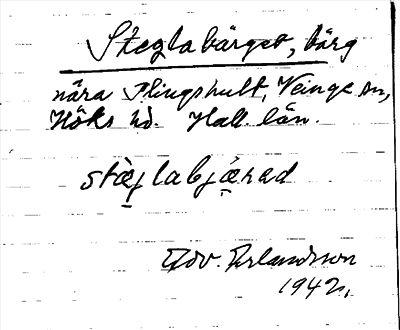 Steglabärget, bärg
nära Plingshult, Veinge sn,
Höks hd. Hall. län.
stæglabjærad
Edv. Erlandsson
1942.